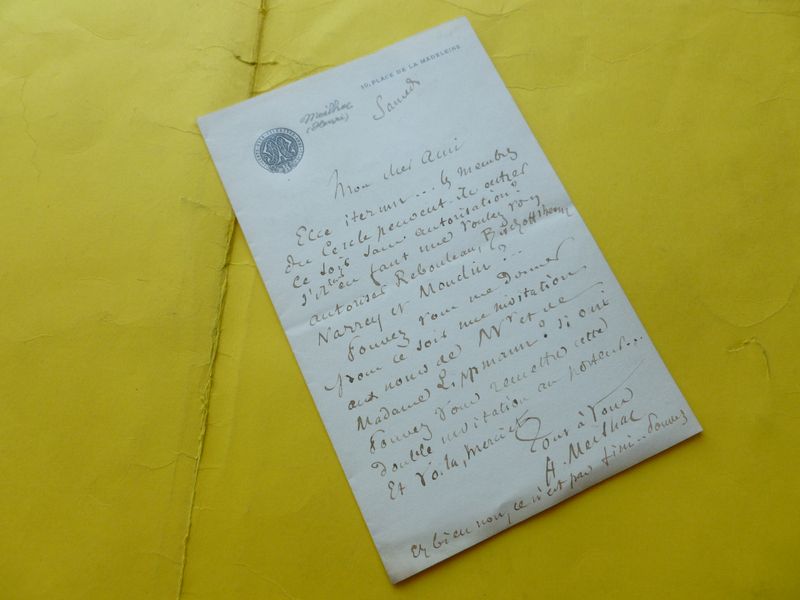 10, PLACE DE LA MADELEINE
Meilhac
(Henri)
Samedi
Mon cher ami
Elce iterum... les membres
du Cercle peuvent ils entrer
ce soir sans autorisation?
s'il en faut une voulez vous
autoriser Rebouleau, Bischoffsheim
Narrey et
Pouvez vous me donner
pour ce soir une invitation
aux noms de Mr et de
Madame Lippmann? Si oui
Pouvez vous remettre cette
double invitation au porteur...
Et voila, merci et
Tout à vous
H. Meilhac
eh bien non, ce n'est pas fini.. Pouvez